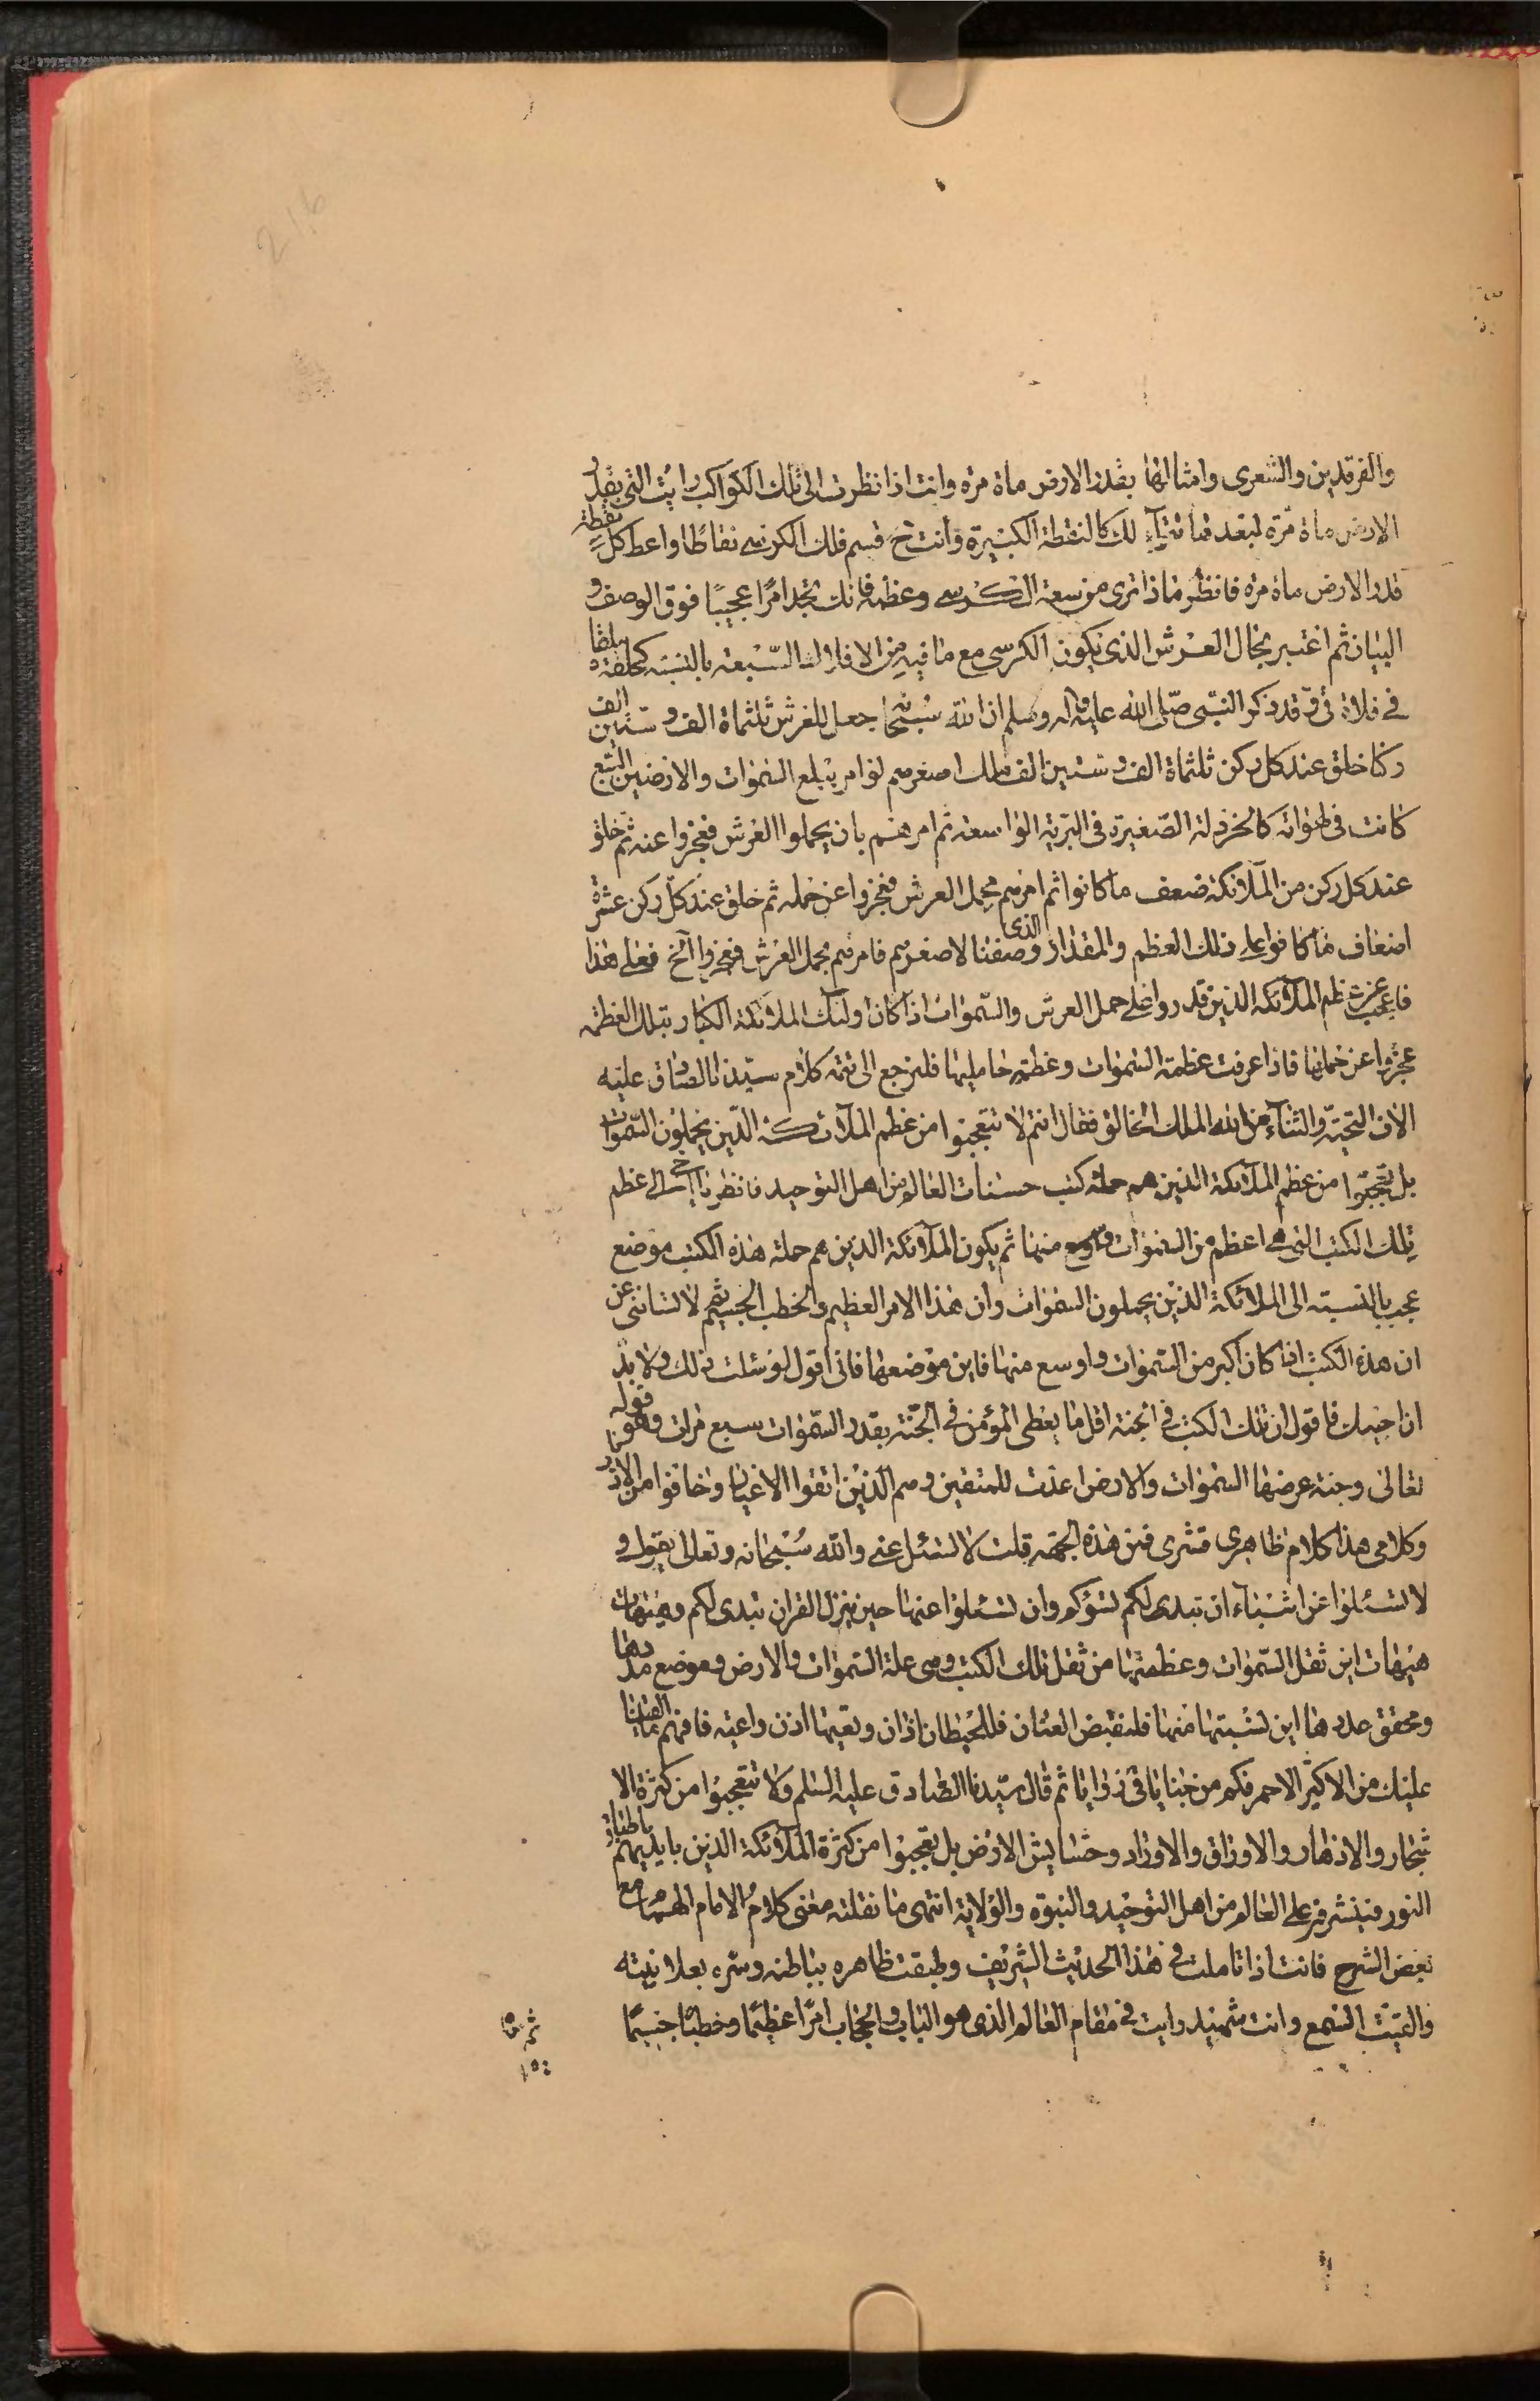 والفرقدين والشعرى وامثالها بقدر الارض مأة مرة وانت اذا نظرت الى تلك الكواكب رايت التي بقدر
الارض مأة مرة لبعد مسافة لك كالنقطة الكبيرة وانت ح قسم فلك الكرسي نقاطا واعط كل نقطة
قدر الارض مأة مرة فانظر ماذا ترى من سعة الكرسي وعظمه فانك تجد امرا عجيبا فوق الوصف و
البيان ثم اعتبر بحال العرش الذي يكون الكرسي مع ما فيه من الافلاك السبعة بالنسبة كحلقة ملقاة
في فلاة قي وقد ذكر النبي صلى الله عليه واله وسلم ان الله سبحانه جعل للعرش ثلثمأة الف وستين الف
ركنا خلق عند كل ركن ثلثمأة الف وستين الف ملك اصغرهم لو امر بتبلع السموات والارضين السبع
كانت في لهواته كالخردلة الصغيرة في البرية الواسعة ثم امرهم بان يحملوا العرش فعجزوا عنه ثم خلق
عند كل ركن من الملائكة ضعف ما كانوا ثم امرهم بحمل العرش فعجزوا عن حمله ثم خلق عند كل ركن عشرة
اضعاف ما كانوا على ذلك العظم والمقدار الذي وصفنا لاصغرهم فامرهم بحمل العرش فعجزوا الخ فعلى هذا
فاعجب عن عظم الملائكة الذين قدروا على حمل العرش والسموات اذا كان اولئك الملائكة الكبار بتلك العظمة
عجزوا عن حملها فاذا عرفت عظمة السموات وعظمة حامليها فلنرجع الى تتمة كلام سيدنا الصادق عليه
الاف التحية والثناء من الله الملك الخالق فقال انتم لا تتعجبوا من عظم الملائكة الذين يحملون السموات
بل تعجبوا من عظم الملائكة الذين هم حملة كتب حسنات العالم من اهل التوحيد فانظر يا اخي الى عظم
تلك الكتب التي هي اعظم من السموات واوسع منها ثم يكون الملائكة الذين هم حملة هذه الكتب موضع
عجب بالنسبة الى الملائكة الذين يحملون السموات وان هذا الامر العظيم والخطب الجسيم ثم لا تسئلني عن
ان هذه الكتب اذا كان اكبر من السموات واوسع منها فاين موضعها فاني اقول لو سئلت ذلك ولا بد
ان اجيبك فاقول ان تلك الكتب في الجنة اقل ما يعطى المؤمن في الجنة بقدر السموات سبع مرات وهو قوله
تعالى وجنة عرضها السموات والارض اعدت للمتقين وهم الذين اتقوا الاغيار وخافوا من الانذار
وكلامي هذا كلام ظاهري قشري فمن هذه الجهة قلت لا تسئل عني والله سبحانه وتعالى يقول و
لا تسئلوا عن اشياء ان تبدى لكم تسؤكم وان تسئلوا عنها حين ينزل القران تبدى لكم وهيهات
هيهات اين ثقل السموات وعظمتها من ثقل تلك الكتب وهي علة السموات والارض وموضع مددها
ومحقق عددها اين نسبتها منها فلنقبض العنان فللحيطان اذان وتعيها اذن واعية فافهم ما القينا
عليك من الاكثير الاحمر فكم من خبايا في زوايا ثم قال سيدنا الصادق عليه السلم ولا تتعجبوا من كثرة الا
شجار والازهار والاوراق والاوراد وحشايش الارض بل تعجبوا من كثرة الملائكة الذين بايديهم اطباق
النور فينشرونه على العالم من اهل التوحيد والنبوة والولاية انتهى ما نقلته معنى كلام الامام الهمام مع
بعض الشرح فانت اذا تاملت في هذا الحديث الشريف وطبقت ظاهره بباطنه وسره بعلانيته
والقيت السمع وانت شهيد رايت في مقام العالم الذي هو الباب والحجاب امرا عظيما وخطبا جسيما